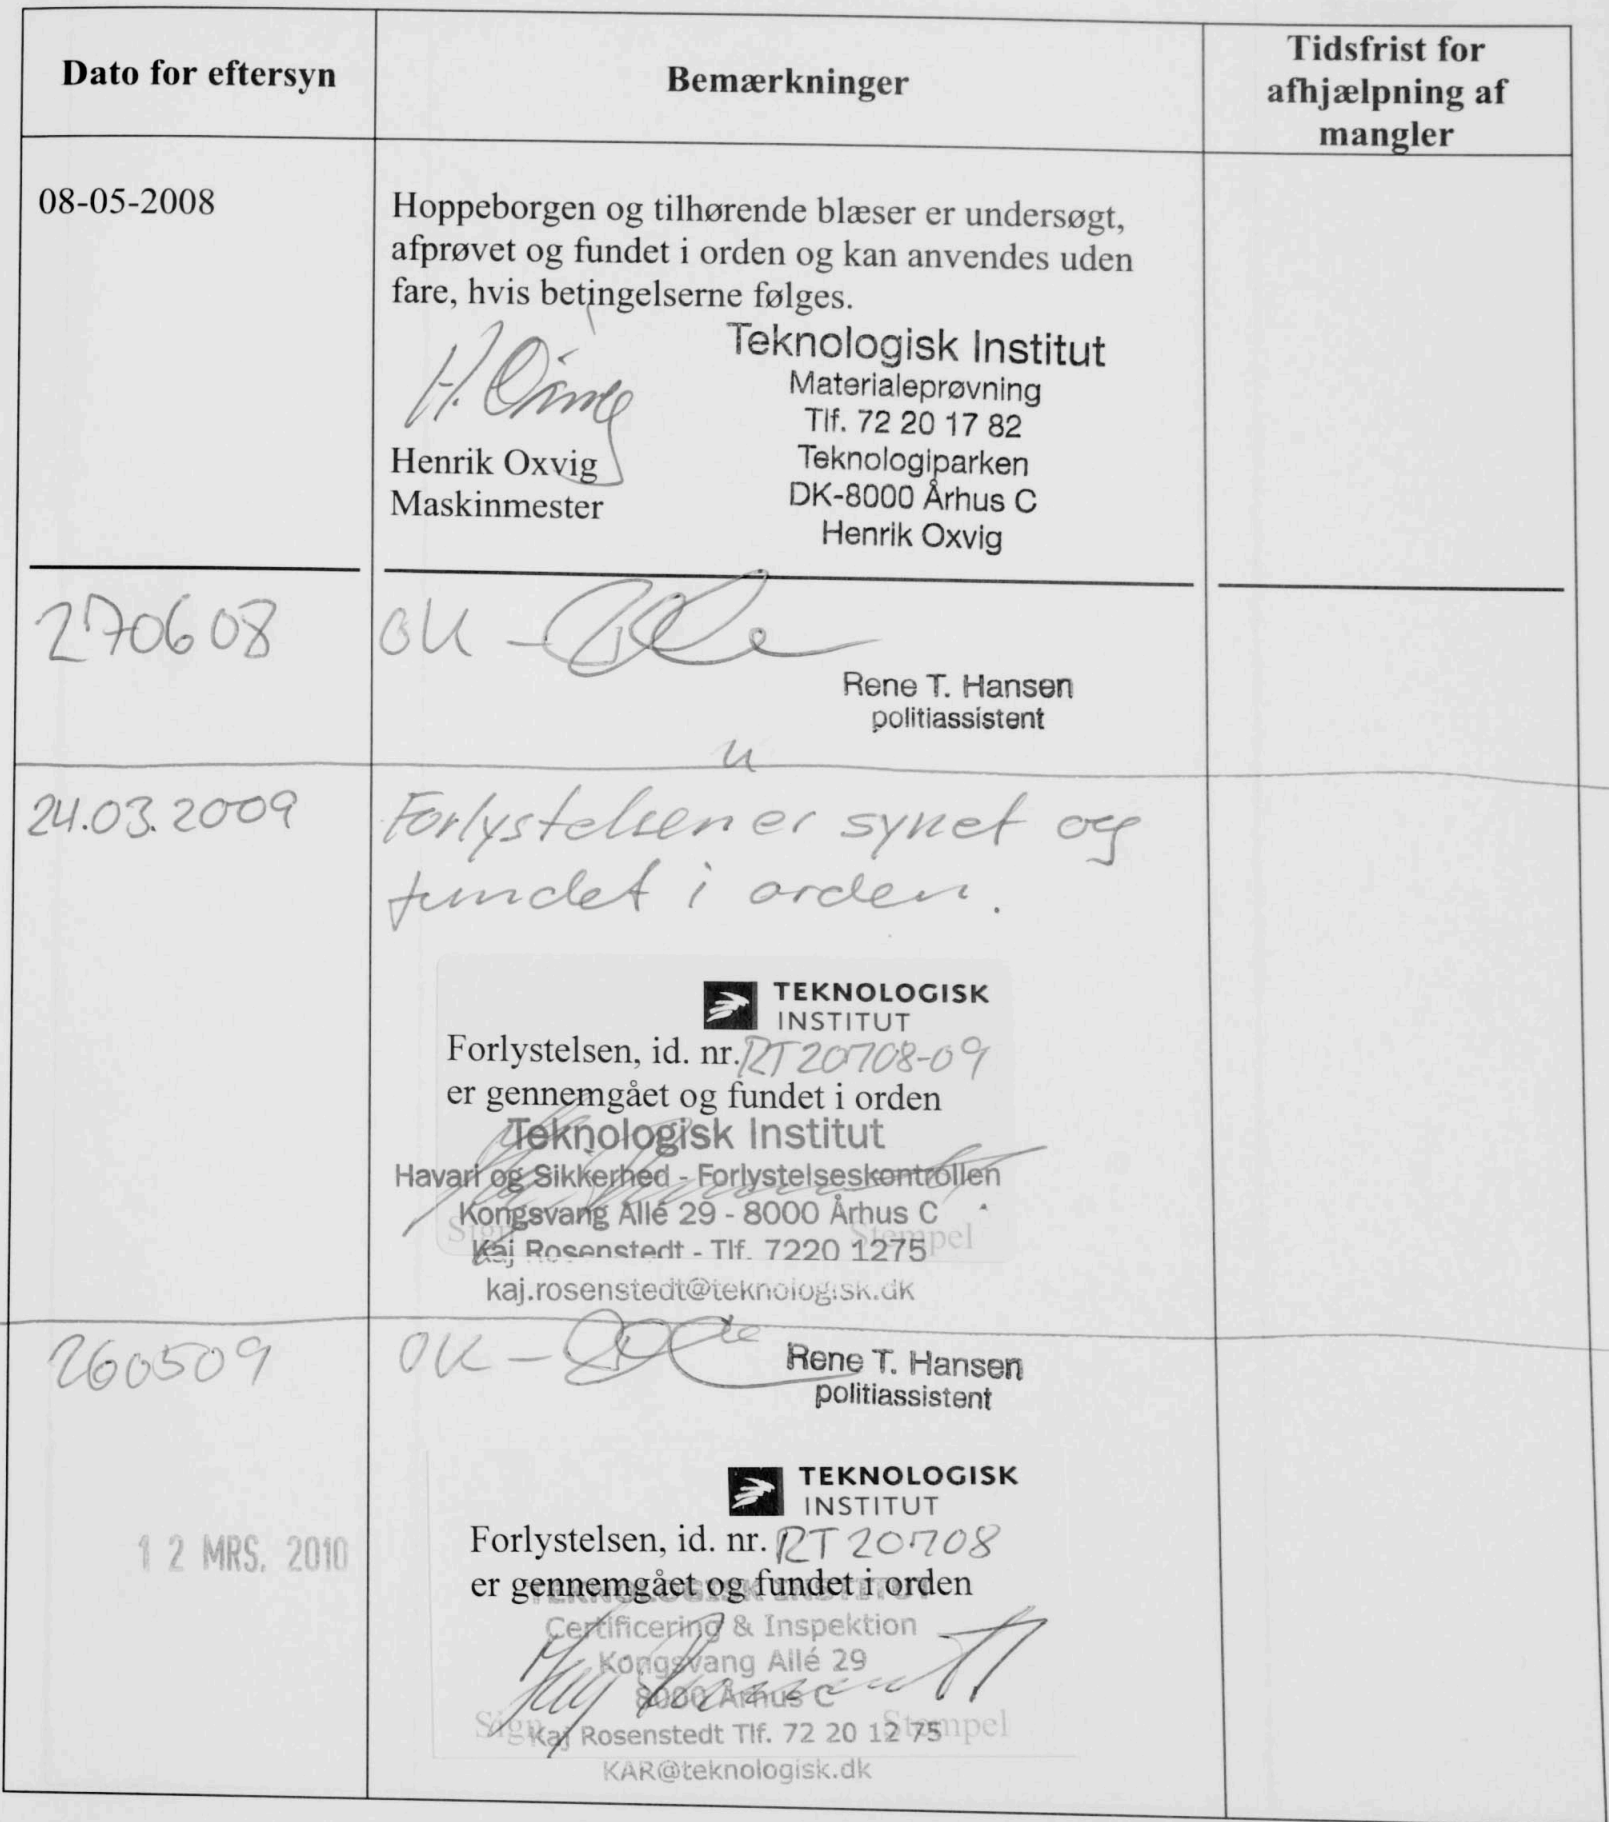 Dato for eftersyn
Bemærkninger
Tidsfrist for
afhjælpning af
mangler
08-05-2008
Hoppeborgen og tilhørende blæser er undersøgt,
afprøvet og fundet i orden og kan anvendes uden
fare, hvis betingelserne følges.
Teknologisk Institut
Materialeprøvning
Tlf. 72 20 17 82
Teknologiparken
DK-8000 Århus C
Henrik Oxvig
Henrik Oxvig
Maskinmester
270608
OK -
Rene T. Hansen
politiassistent
24.03.2009
Forlystelsen er synet og
fundet i orden.
TEKNOLOGISK
INSTITUT
Forlystelsen, id. nr. RT20708-09
er gennemgået og fundet i orden
Teknologisk Institut
Havari og Sikkerhed - Forlystelseskontrollen
Kongsvang Allé 29 - 8000 Århus C
Sign Stempel
Kaj Rosenstedt - Tlf. 7220 1275
kaj.rosenstedt@teknologisk.dk
260509
OK -
Rene T. Hansen
politiassistent
12 MRS. 2010
TEKNOLOGISK
INSTITUT
Forlystelsen, id. nr. RT20708
er gennemgået og fundet i orden
TEKNOLOGISK INSTITUT
Certificering & Inspektion
Kongsvang Allé 29
8000 Århus C
Sign Stempel
Kaj Rosenstedt Tlf. 72 20 12 75
KAR@teknologisk.dk